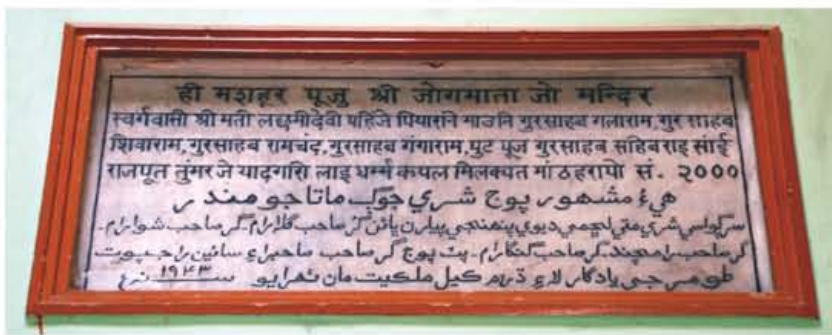 ही मशहूर पूजु श्री जोगमाता जो मन्दिर
स्वर्गवासी श्री मती लछमीदेवी पंहिजे पियारनि भाउनि गुरसाहब गलाराम, गुर साहब
शिवाराम, गुरसाहब रामचंद, गुरसाहब गंगाराम, पुट पूज गुरसाहब सहिबराइ सांई
राजपूत तुंमर जे यादगारि लाइ धर्म्म कयल मिलक्यत मां ठहरायो सं. २०००
هيءُ مشهور پوڄ شري جوڳ ماتا جو مندر
سرڳواسي شري متي لڇمي ديوي پنهنجي پيارن ڀائن گر صاحب گلارام گر صاحب شوارام۔
گر صاحب رامچند۔ گر صاحب گنگارام۔ پٽ پوڄ گر صاحب صاحبراءِ سائين راجپوت
طومر جي يادگار لاءِ ڌرم ڪيل ملڪيت مان ٺهرايو سنه ۱۹۴۳ع